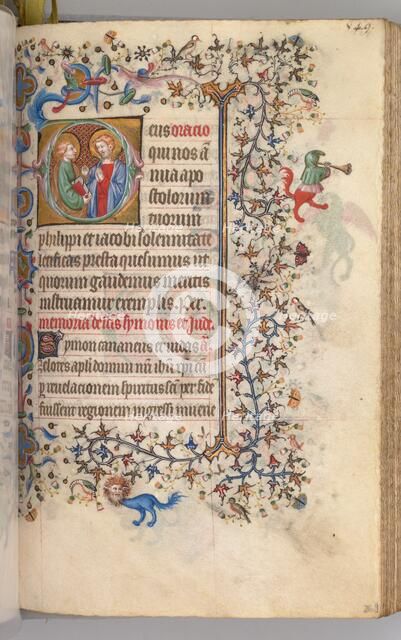 eus oracio
qui nos a
nua apo
stolorum
tuorum
philippi et iacobi solennitate
letificas presta quesumus ut
quorum gaudemus meritis
instruamur exemplis. Per.
memoria de scis symonis et Jude.
Symon cananeus et iudas
zelotes apli domini
per reuelacionem spiritus sci per fide
fuissent regionem ingressi
heritage
Images